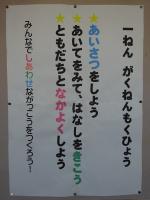 一ねん がくねんもくひょう
★あいさつをしよう
★あいてをみて、はなしをきこう
★ともだちとなかよくしよう
みんなでしあわせながっこうをつくろう!